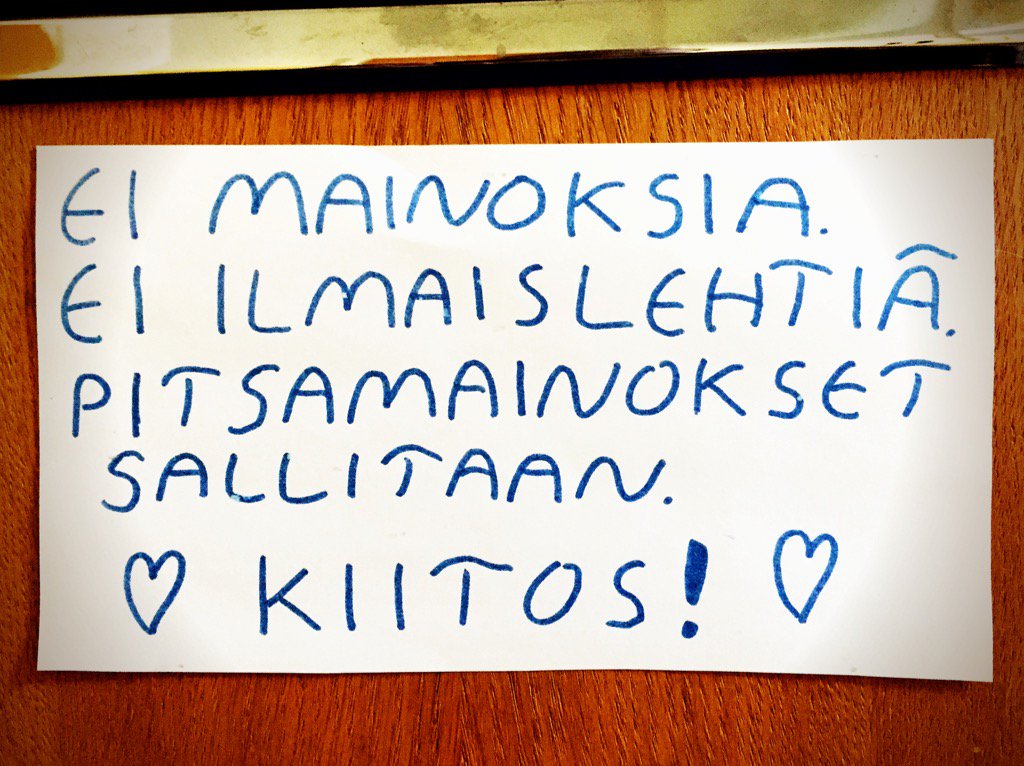 EI MAINOKSIA.
EI ILMAISLEHTIÄ.
PITSAMAINOKSET
SALLITAAN.
♡ KIITOS! ♡